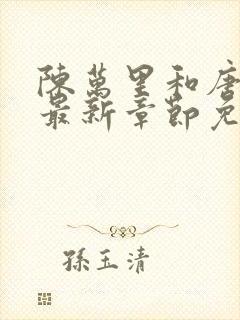 陳萬里和唐
最新章節免
孫玉清